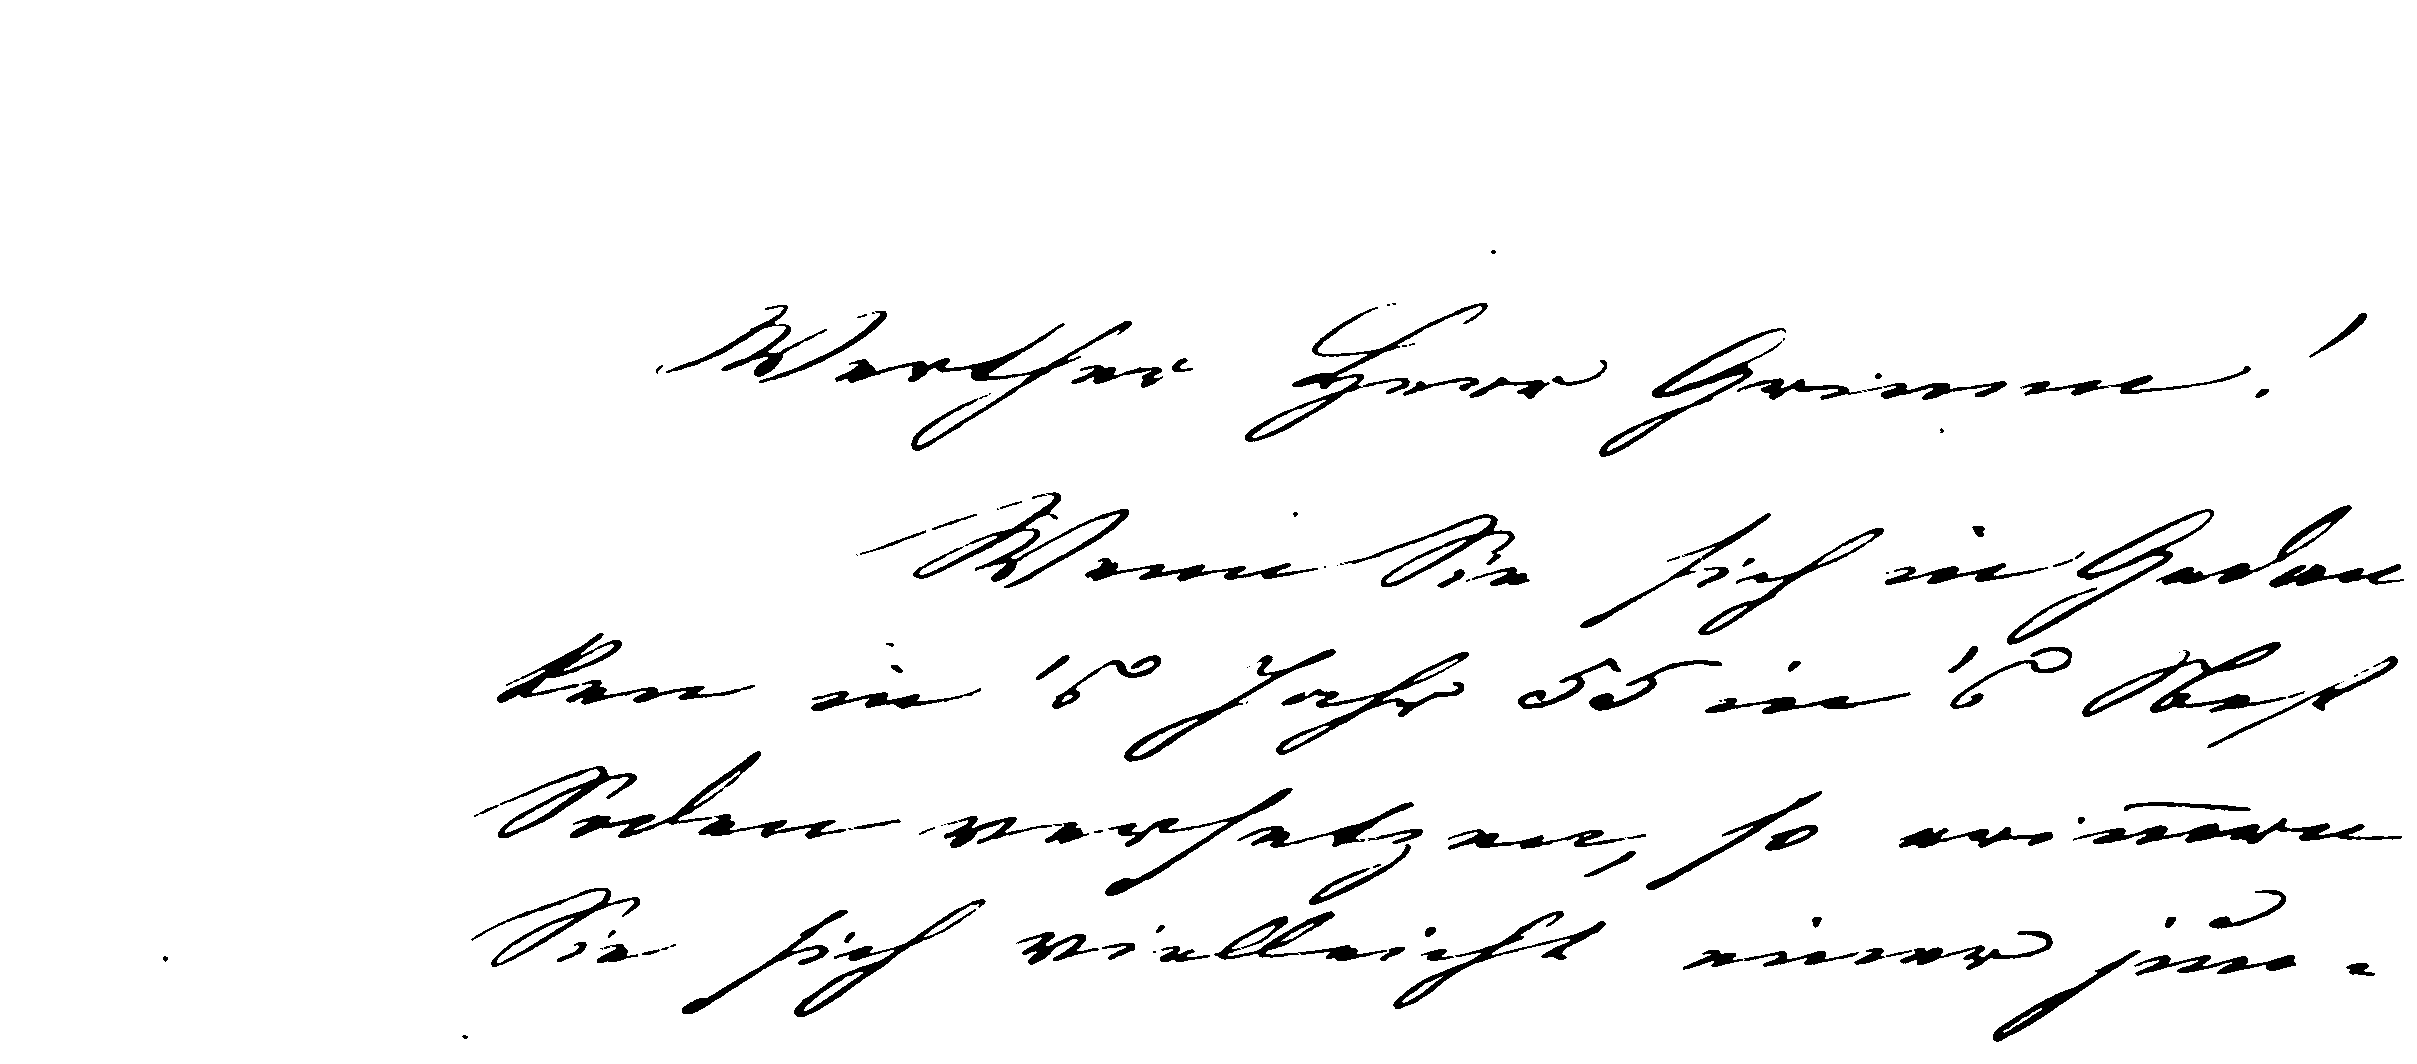 Werther Herr Grimm!
Wenn Sie sich in Gedan
ken in's Jahr 55 in's
Soden versetzen, so erin̄ern
Sie sich vielleicht einer jun-